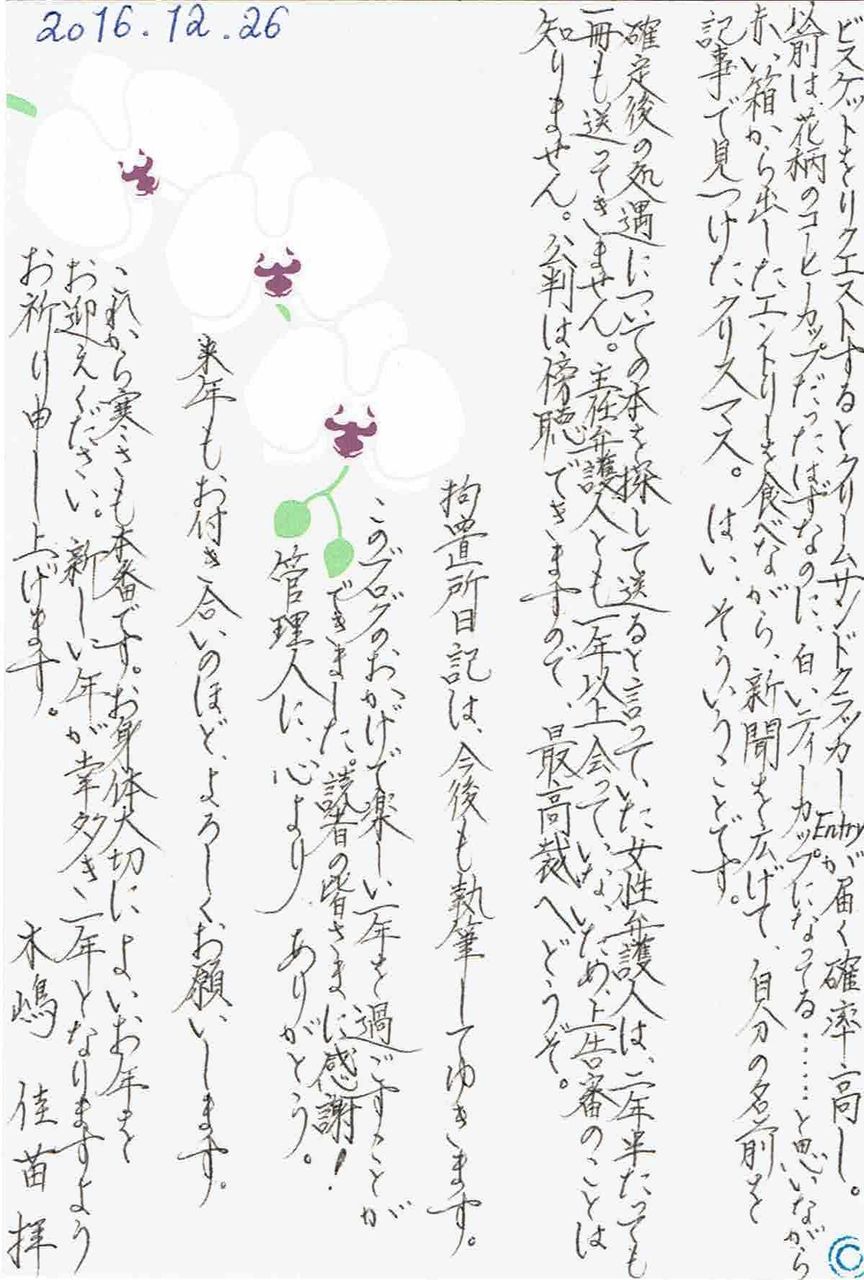 2016.12.26
ビスケットをリクエストするとクリームサンドクラッカーEntryが届く確率高し。
以前は花柄のコーヒーカップだったはずなのに、白いティーカップになってる……と思いながら
赤い箱から出したエントリーを食べながら、新聞を広げて、自分の名前を
記事で見つけたクリスマス。はい、そういうことです。
確定後の処遇についての本を探して送ると言っていた女性弁護人は、二年半たっても
一冊も送ってきません。主任弁護人とも一年以上会っていないため、上告審のことは
知りません。公判は傍聴できますので、最高裁へどうぞ。
拘置所日記は、今後も執筆してゆきます。
このブログのおかげで楽しい一年を過ごすことが
できました。読者の皆さまに感謝!
管理人に、心より ありがとう。
来年もお付き合いのほど、よろしくお願いします。
これから寒さも本番です。お身体大切によいお年を
お迎えください。新しい年が幸多き一年となりますよう
お祈り申し上げます。
木嶋 佳苗 拝
©